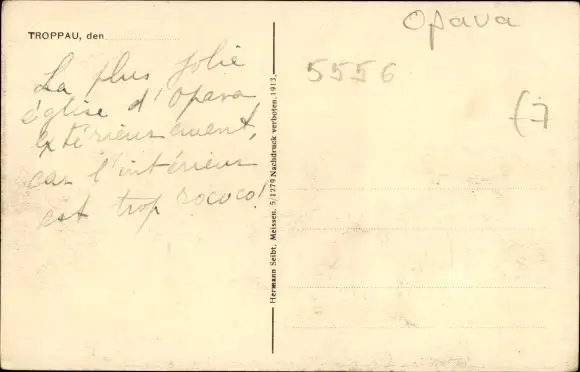 TROPPAU, den
La plus jolie
église d'Opava
extérieurement,
car l'intérieur
est trop rococo!
Hermann Seibt, Meissen, 5/1279 Nachdruck verboten. 1913.
Opava
5556